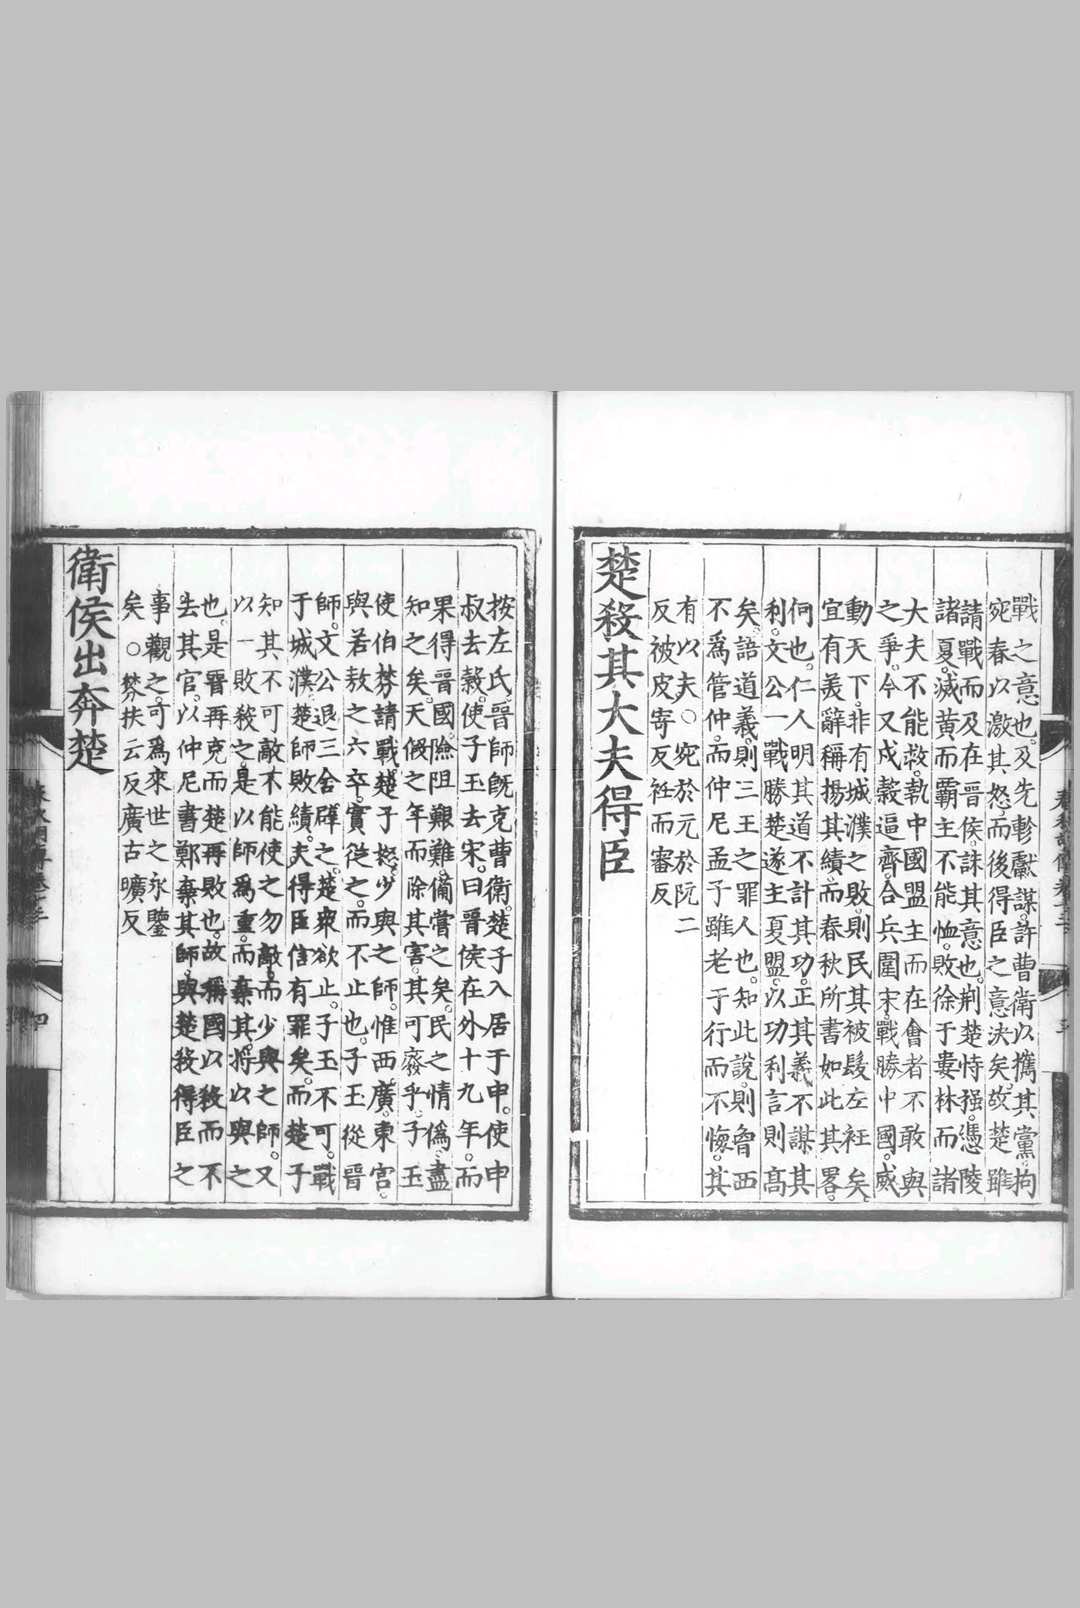 戰之意也。及先軫獻謀。許曹衛以攜其黨。拘
宛春以激其怒。而後得臣之意決矣。故楚雖
請戰。而及在晉侯。誅其意也。荆楚恃强。憑陵
諸夏。滅黃而霸主不能恤。敗徐于婁林而諸
大夫不能救。執中國盟主而在會者不敢與
之爭。今又戍穀逼齊。合兵圍宋。戰勝中國。威
動天下。非有城濮之敗。則民其被髮左衽矣。
宜有美辭稱揚其績。而春秋所書如此其畧。
何也。仁人明其道不計其功。正其義不謀其
利。文公一戰勝楚。遂主夏盟。以功利言則高
矣。語道義。則三王之罪人也。知此說。則曾西
不爲管仲。而仲尼孟子雖老于行而不悔。其
有以夫○宛於元於阮二
反被皮寄反衽而審反
楚殺其大夫得臣
按左氏。晉師既克曹衛。楚子入居于申。使申
叔去穀。使子玉去宋。曰晉侯在外十九年。而
果得晉國。險阻艱難。備嘗之矣。民之情僞。盡
知之矣。天假之年而除其害。其可廢乎。子玉
使伯棼請戰。楚子怒。少與之師。惟西廣。東宮。
與若敖之六卒。實從之。而不止也。子玉從晉
師。文公退三舍辟之。楚衆欲止。子玉不可。戰
于城濮。楚師敗績。夫得臣信有罪矣。而楚子
知其不可敵。不能使之勿敵。而少與之師。又
以一敗殺之。是以師爲重。而棄其將以與之
也。是晉再克而楚再敗也。故稱國以殺而不
去其官。以仲尼書鄭棄其師。與楚殺得臣之
事觀之。可爲來世之永鑒
矣○棼扶云反廣古曠反
衛侯出奔楚